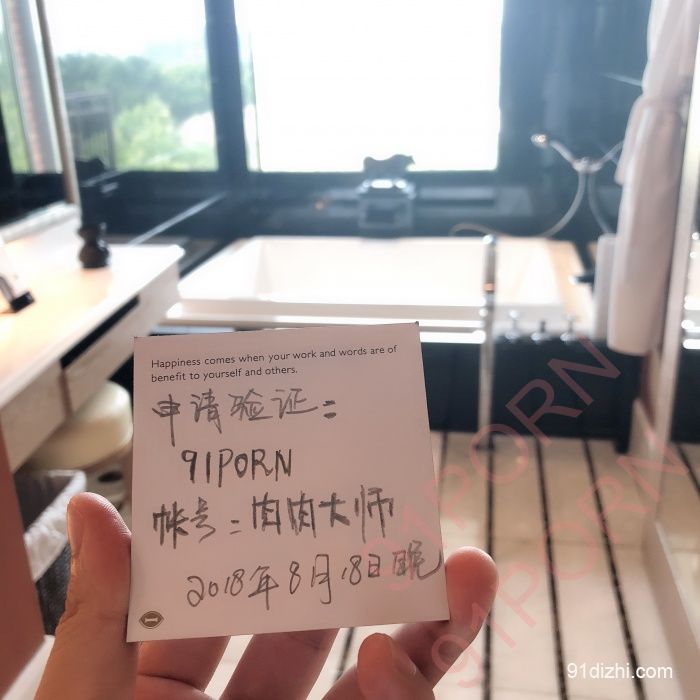 Happiness comes when your work and words are of
benefit to yourself and others.
申请验证:
91PORN
帐号:肉肉大师
2018年8月18日晚
91PORN
91PORN
91dizhi.com